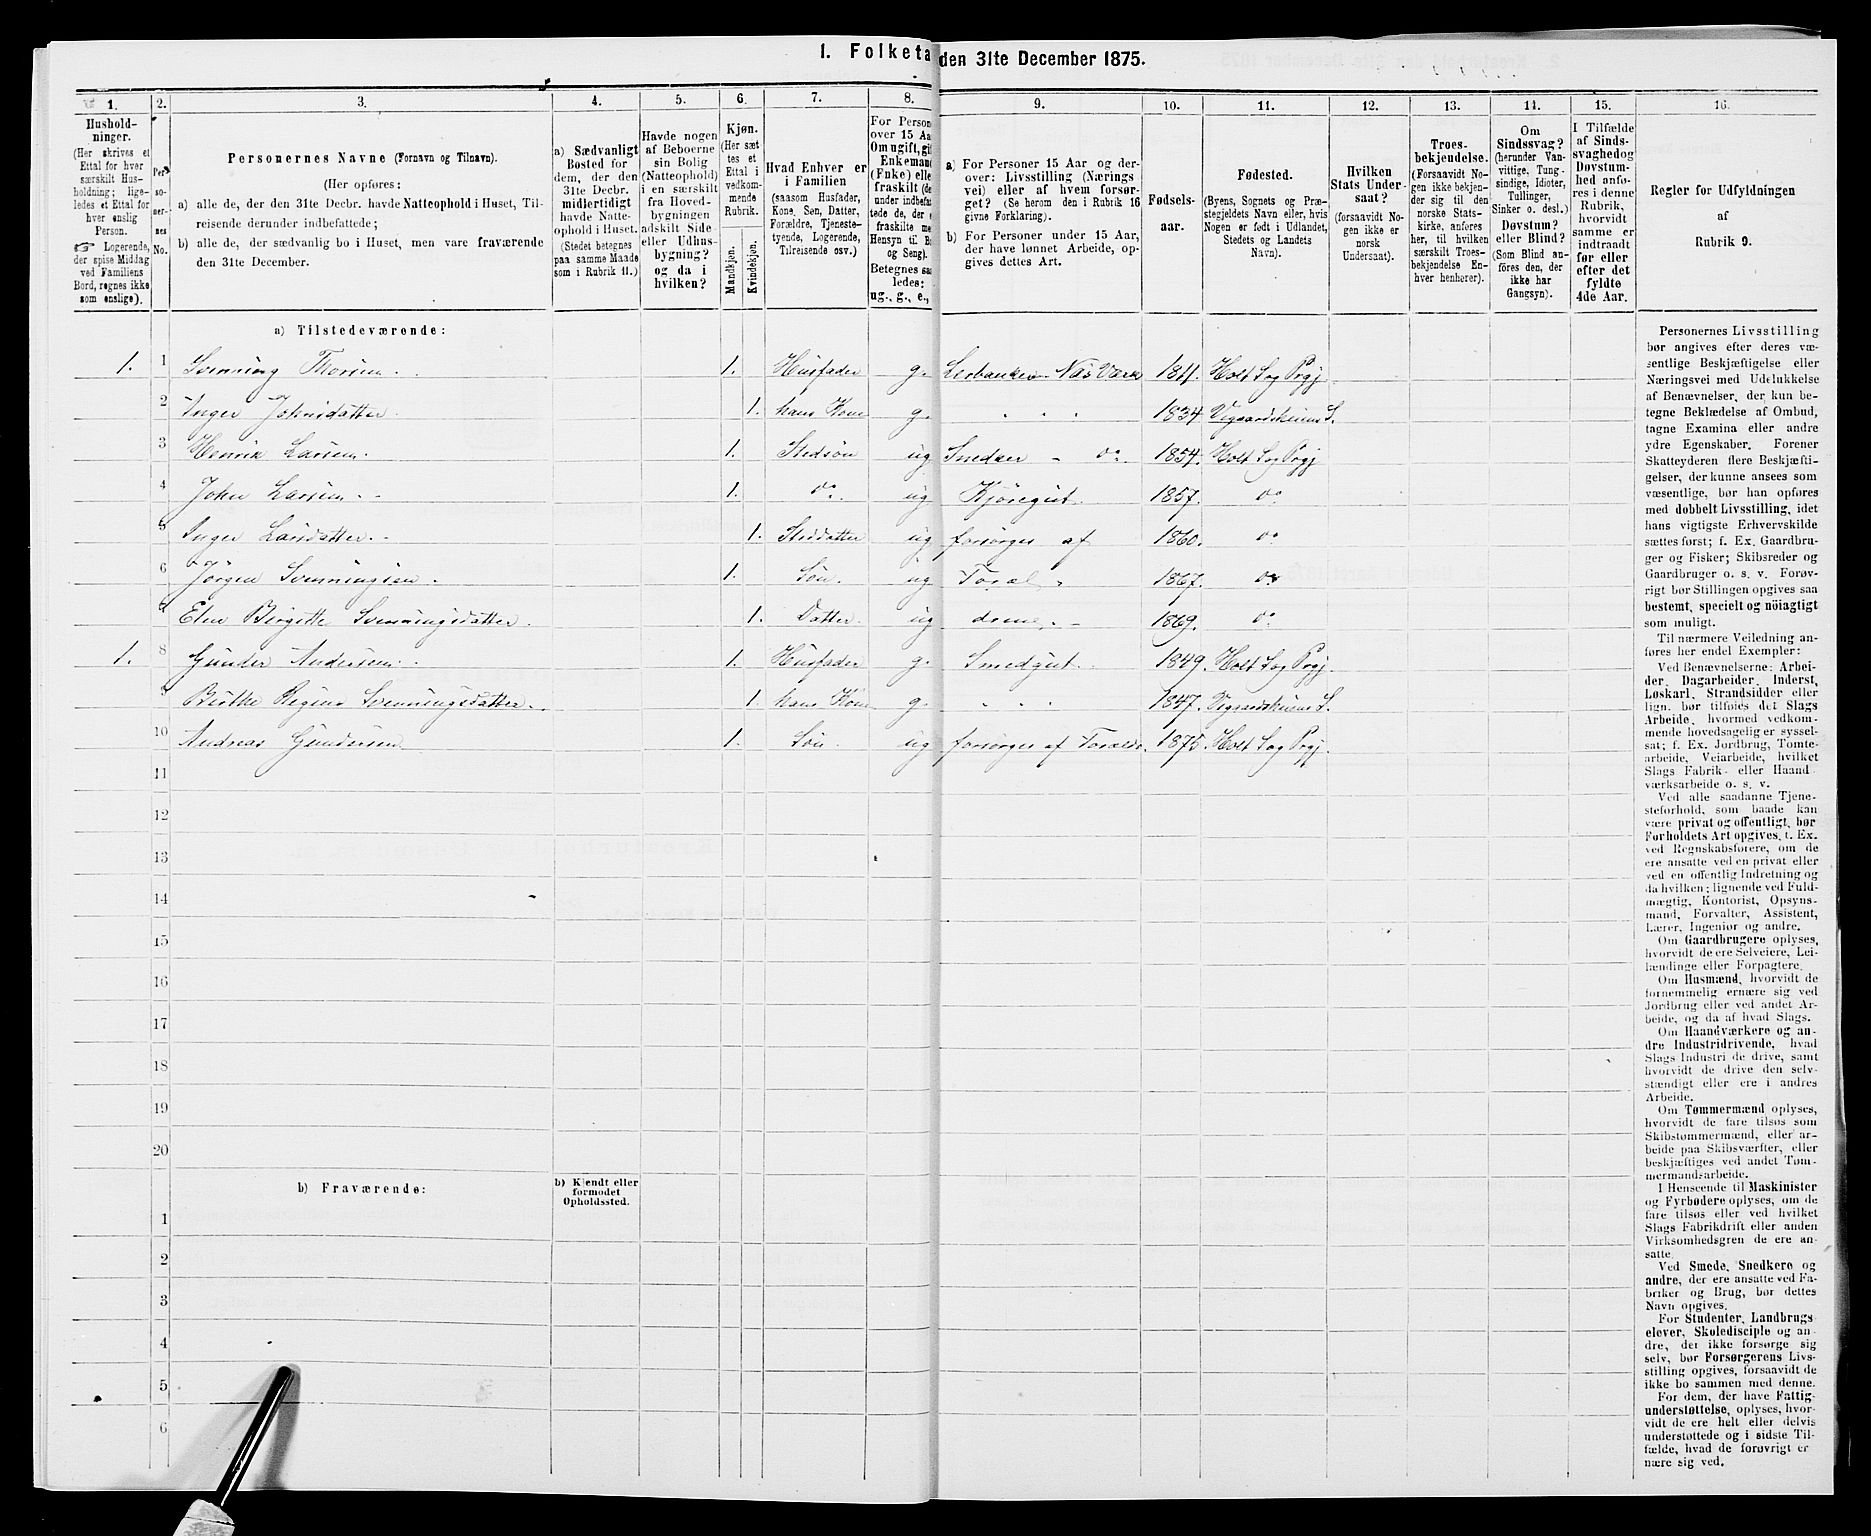 1. Folketa den 31te December 1875.
1. 2. 3. 4. 5. 6. 7. 8. 9. 10. 11. 12. 13. 14. 15. 16.
Hushold-
ninger.
(Her skrives et
Ettal for hver
særskilt Hus-
holdning; lige-
ledes et Ettal for
hver enslig
Person.
☞ Logerende,
der spise Middag
ved Familiens
Bord, regnes ikke
som enslige).
Per-
so-
ner-
nes
No.
Personernes Navne (Fornavn og Tilnavn).
(Her opføres:
a) alle de, der den 31te Decbr. havde Natteophold i Huset, Til-
reisende derunder indbefattede;
b) alle de, der sædvanlig bo i Huset, men vare fraværende
den 31te December.
a) Sædvanligt
Bosted for
dem, der den
31te Decbr.
midlertidigt
havde Natte-
ophold i Huset.
(Stedet betegnes
paa samme Maade
som i Rubrik 11.)
Havde nogen
af Beboerne
sin Bolig
(Natteophold)
i en særskilt
fra Hoved-
bygningen
adskilt Side-
eller Udhus-
bygning?
og da i
hvilken?
Kjøn.
(Her sæt-
tes et
Ettal i
vedkom-
mende
Rubrik.
Mandkjøn.
Kvindekjøn.
Hvad Enhver er
i Familien
(saasom Husfader,
Kone, Søn, Datter,
Forældre, Tjeneste-
tyende, Logerende,
Tilreisende osv.)
For Person
over 15 Aa
Om ugift, gif
Enkemand
(Enke) elle
fraskilt (de
under indbefat
tede de, der e
fraskilte me
Hensyn til Bo
og Seng).
Betegnes saa
ledes:
ug., g., e.,
a) For Personer 15 Aar og der-
over: Livsstilling (Nærings-
vei) eller af hvem forsør-
get? (Se herom den i Rubrik 16
givne Forklaring).
b) For Personer under 15 Aar,
der have lønnet Arbeide, op-
gives dettes Art.
Fødsels-
aar.
Fødested.
(Byens, Sognets og Præ-
stegjeldets Navn eller, hvis
Nogen er født i Udlandet,
Stedets og Landets
Navn).
Hvilken
Stats Under-
saat?
(forsaavidt No-
gen ikke er
norsk
Undersaat).
Troes-
bekjendelse.
(Forsaavidt No-
gen ikke bekjen-
der sig til den
norske Stats-
kirke, anføres
her, til hvilken
særskilt Troes-
bekjendelse En-
hver henhører).
Om
Sindssvag?
(herunder Van-
vittige, Tung-
sindige, Idioter,
Tullinger,
Sinker o. desl.)
Døvstum?
eller Blind?
(Som Blind an-
føres den, der
ikke har
Gangsyn).
I Tilfælde
af Sinds-
svaghed og
Døvstum-
hed anfø-
res i denne
Rubrik,
hvorvidt
samme er
indtraadt
før eller
efter det
fyldte
4de Aar.
Regler for Udfyldningen
af
Rubrik 9.
a) Tilstedeværende:
1. 1 Svenning Thorsen 1. Husfader g. Næs Værk 1811. Holt Sog Prgj
2 Inger Johnsdatter 1. hans Kone g. " " " 1834 Vegaardskeiens S.
3 Henrik Larsen 1. Stedsøn ug Snedker - do 1854. Holt Sog Prgj
4 John Larsen 1. do ug Kjøregut 1857. do
5 Inger Larsdatter 1. Steddatter ug forsørges af 1860. do
6 Jörgen Svenningsen 1. Søn ug 1867. do
7 Elen Birgitte Svenningsdatter 1. Datter ug 1869. do
1. 8 Gunder Andersen 1. Husfader g. Smedgut 1849. Holt Sog Prgj.
9 Regine Svenningsdatter 1. hans Kone g. " " " 1847. Vegaardskeiens S.
10 Andreas Gundersen 1. Søn ug forsørges af 1875. Holt Sog Prgj.
11
12
13
14
15
16
17
18
19
20
b) Fraværende:
b) Kjendt eller
formodet
Opholdssted.
1
2
3
4
5
6
Personernes Livsstilling
bør angives efter deres væ-
sentlige Beskjæftigelse eller
Næringsvei med Udelukkelse
af Benævnelser, der kun be-
tegne Beklædelse af Ombud,
tagne Examina eller andre
ydre Egenskaber. Forener
Skatteyderen flere Beskjæfti-
gelser, der kunne ansees som
væsentlige, bør han opføres
med dobbelt Livsstilling, idet
hans vigtigste Erhvervskilde
sættes først; f. Ex. Gaardbru-
ger og Fisker; Skibsreder og
Gaardbruger o. s. v. Forøv-
rigt bør Stillingen opgives saa
bestemt, specielt og nöiagtigt
som muligt.
Til nærmere Veiledning an-
føres her endel Exempler:
Ved Benævnelserne: Arbei-
der, Dagarbeider, Inderst,
Løskarl, Strandsidder eller
lign. bør tilføies det Slags
Arbeide, hvormed vedkom-
mende hovedsagelig er syssel-
sat; f. Ex. Jordbrug, Tomte-
arbeide, Veiarbeide, hvilket
Slags Fabrik- eller Haand-
værksarbeide o. s. v.
Ved alle saadanne Tjene-
steforhold, som baade kan
være privat og offentligt, bør
Forholdets Art opgives, t. Ex.
ved Regnskabsførere, om de
ere ansatte ved en privat eller
ved en offentlig Indretning og
da hvilken; lignende ved Fuld-
mægtig, Kontorist, Opsyns-
mand, Forvalter, Assistent,
Lærer, Ingeniør og andre.
Om Gaardbrugere oplyses,
hvorvidt de ere Selveiere, Lei-
lændinge eller Forpagtere.
Om Husmænd, hvorvidt de
fornemmelig ernære sig ved
Jordbrug eller ved andet Ar-
beide, og da af hvad Slags.
Om Haandværkere og an-
dre Industridrivende, hvad
Slags Industri de drive, samt
hvorvidt de drive den selv-
stændigt eller ere i andres
Arbeide.
Om Tømmermænd oplyses,
hvorvidt de fare tilsøs som
Skibstømmermænd, eller ar-
beide paa Skibsværfter, eller
beskjæftiges ved andet Tøm-
mermandsarbeide.
I Henseende til Maskinister
og Fyrbødere oplyses, om de
fare tilsøs eller ved hvilket
Slags Fabrikdrift eller anden
Virksomhedsgren de ere an-
satte.
Ved Smede, Snedkere og
andre, der ere ansatte ved Fa-
briker og Brug, bør dettes
Navn opgives.
For Studenter, Landbrugs-
elever, Skoledisciple og an-
dre, der ikke forsørge sig
selv, bør Forsørgerens Livs-
stilling opgives, forsaavidt de
ikke bo sammen med denne.
For dem, der have Fattig-
understøttelse, oplyses, hvor-
vidt de ere helt eller delvis
understøttede og i sidste Til-
fælde, hvad de forøvrigt er-
nære sig ved.